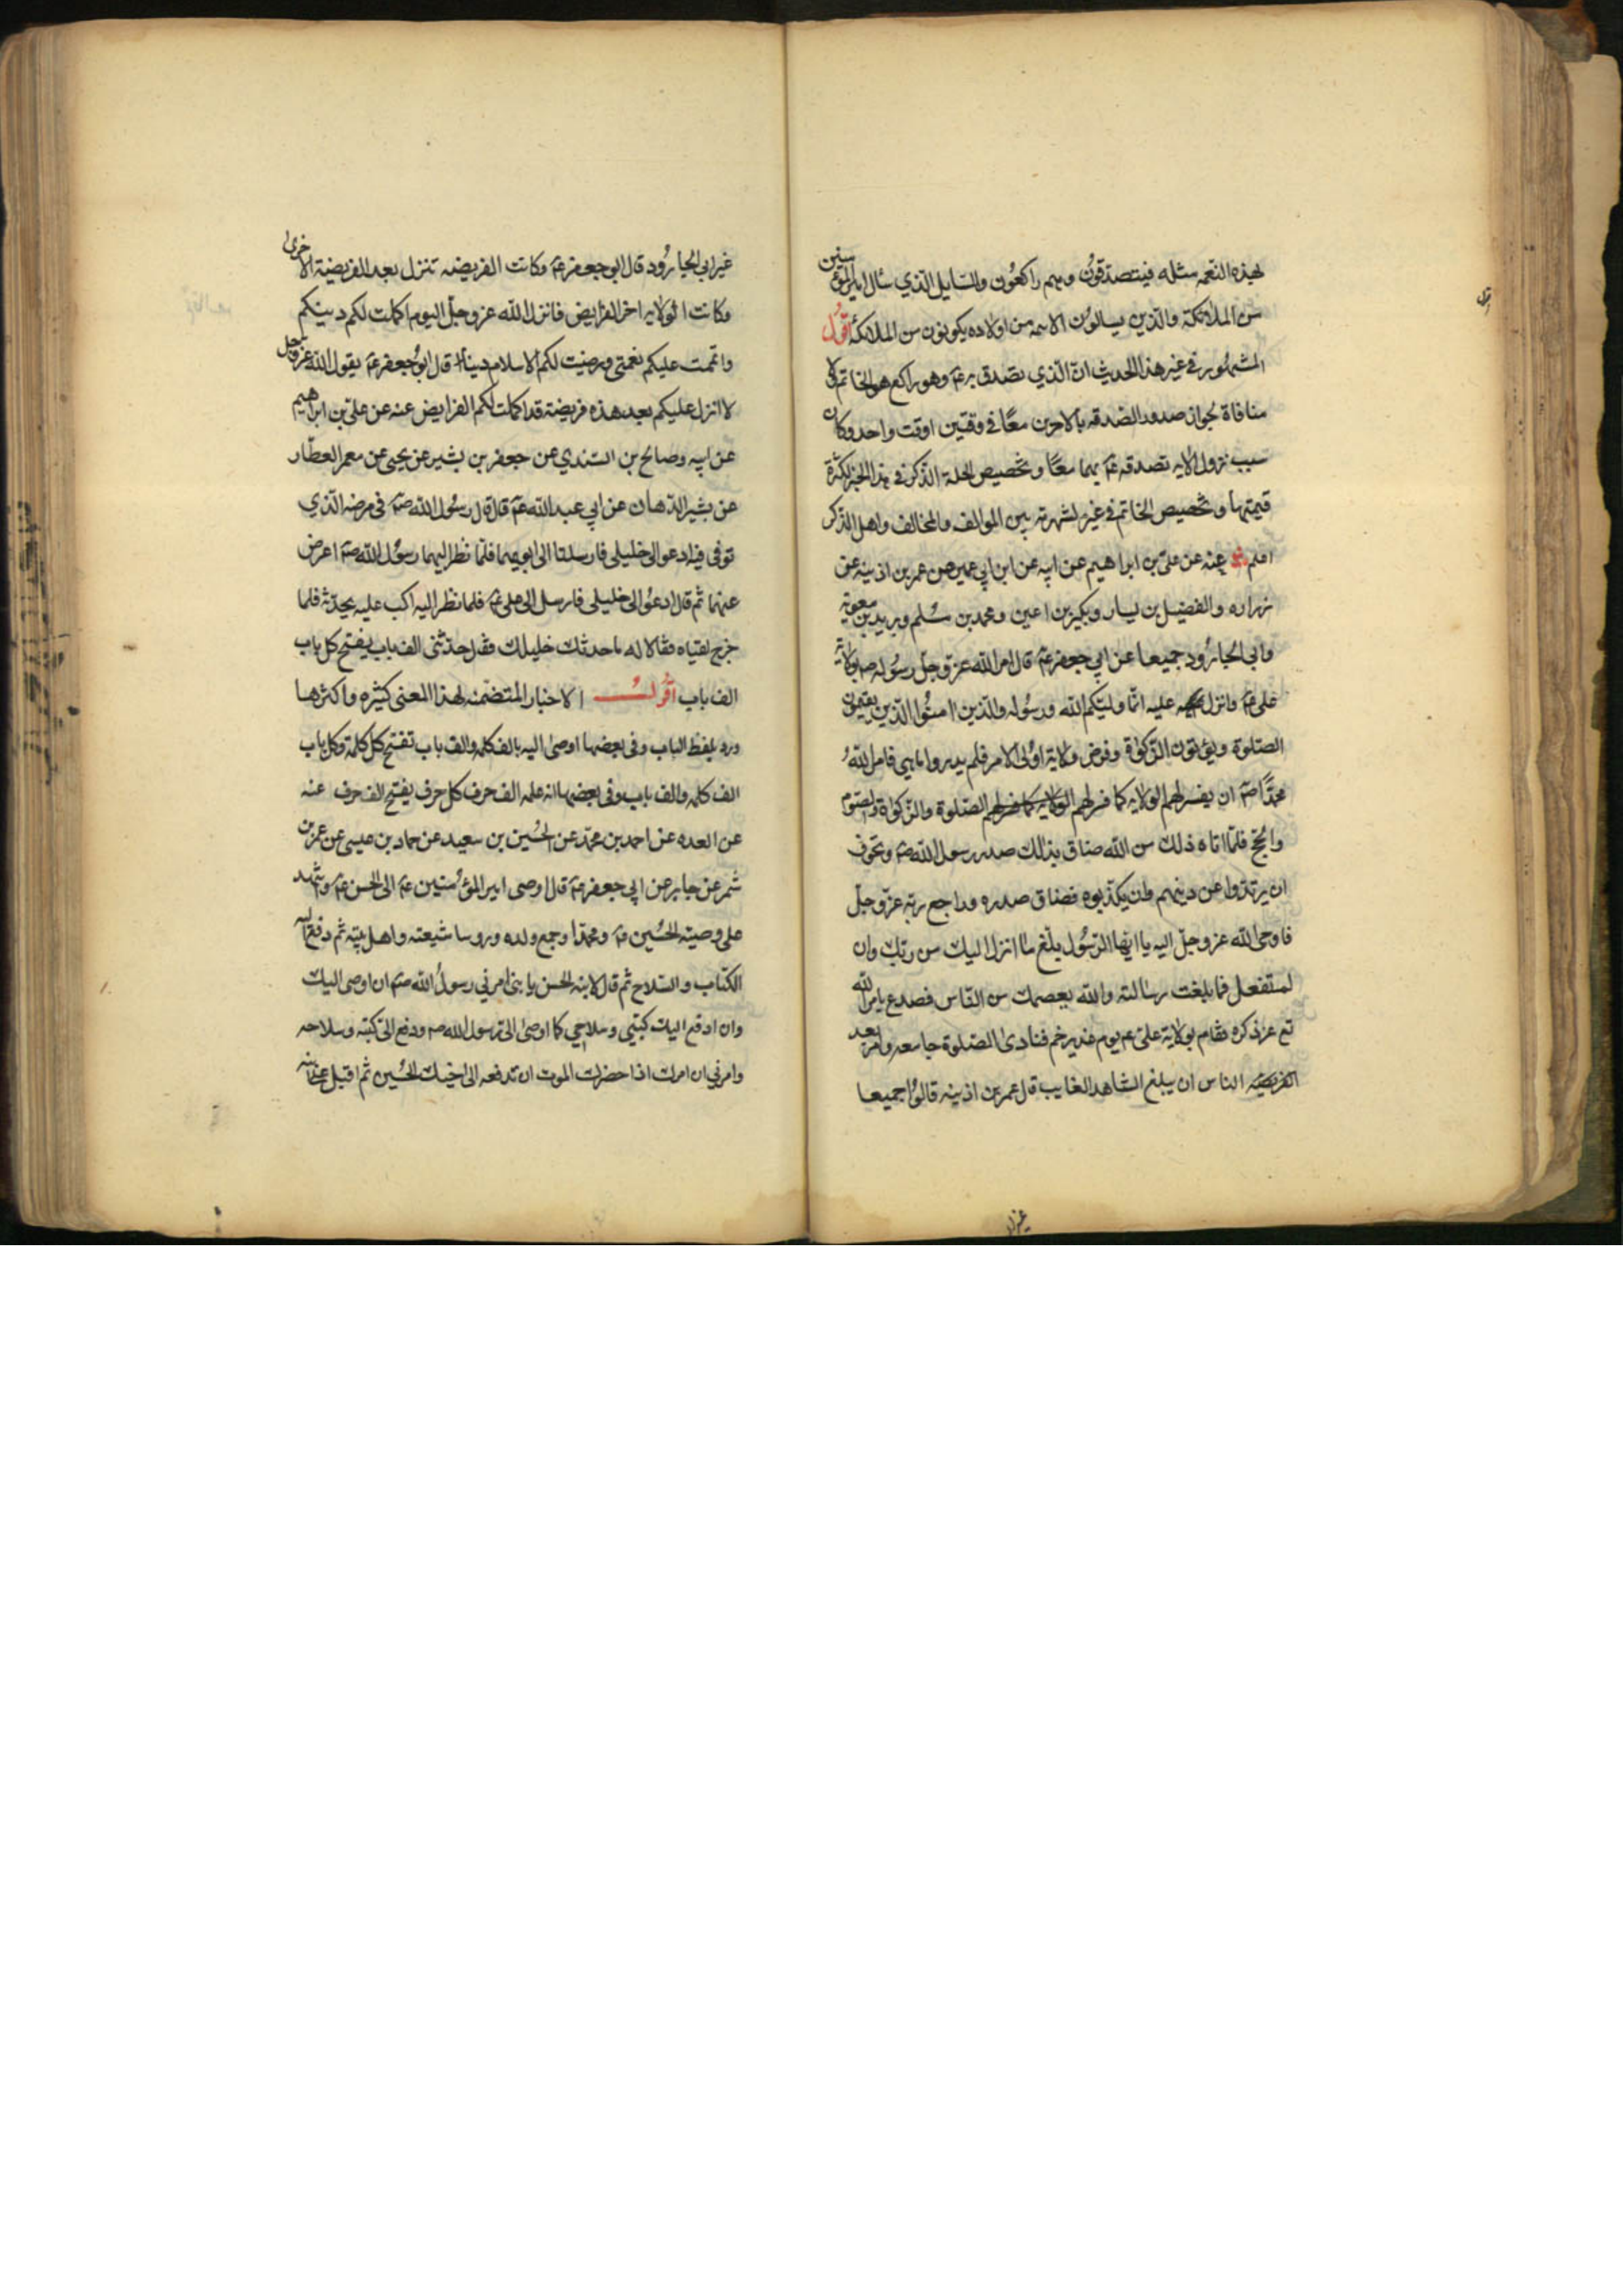 لهذه النعمه مثله فيتصدقون وهم راكعون والسايل الذي سأل امير المؤمنين
من الملائكة والذين يسالون الائمه من اولاده يكونون من الملائكة أقول
المشهور في غير هذا الحديث ان الذي تصدق به عم وهو راكع هو الخاتم ولا
منافاة لجواز صدور الصدقه بالامرين معا في وقتين او وقت واحد وكان
سبب نزول الايه تصدقه عم بهما معا وتخصيص الحلة الذكر في هذا الخبر لكثرة
قيمتها وتخصيص الخاتم في غيره لشهرته بين الموالف والمخالف واهل الذكر
اعلم عنه عن علي بن ابراهيم عن ابيه عن ابن ابي عمير عن عمر بن اذينه عن
زراره والفضيل بن يسار وبكير بن اعين ومحمد بن مسلم وبريد بن معوية
وابي الجارود جميعا عن ابي جعفر عم قال امر الله عز وجل رسوله ص بولاية
علي عم وانزل عليه انما وليكم الله ورسوله والذين امنوا الذين يقيمون
الصلوة ويؤتون الزكوة وفرض ولاية اولى الامر فلم يدروا ما هي فامر الله
محمدا صم ان يفسر لهم الولايه كما فسر لهم الصلوة والزكوة والصوم
والحج فلما اتاه ذلك من الله ضاق بذلك صدر رسول الله صم وتخوف
ان يرتدوا عن دينهم وان يكذبوه فضاق صدره وراجع ربه عز وجل
فاوحى الله عز وجل اليه يا ايها الرسول بلغ ما انزل اليك من ربك وان
لم تفعل فما بلغت رسالته والله يعصمك من الناس فصدع بامر الله
تع عز ذكره فقام بولاية علي عم يوم غدير خم فنادى الصلوة جامعه وامر بعد
الفريضه الناس ان يبلغ الشاهد الغايب قال عمر بن اذينه قالوا جميعا
غير ابي الجارود قال ابو جعفر عم وكانت الفريضه تنزل بعد الفريضة الاخرى
وكانت الولايه اخر الفرايض فانزل الله عز وجل اليوم اكملت لكم دينكم
واتممت عليكم نعمتي ورضيت لكم الاسلام دينا قال ابو جعفر عم يقول الله عز وجل
لا انزل عليكم بعد هذه فريضة قد اكملت لكم الفرايض عنه عن علي بن ابراهيم
عن ابيه وصالح بن السندي عن جعفر بن بشير عن يحيى عن معمر العطار
عن بشير الدهان عن ابي عبد الله عم قال قال رسول الله صم في مرضه الذي
توفى فيه ادعوا لي خليلي فارسلتا الى ابويهما فلما نظر اليهما رسول الله صم اعرض
عنهما ثم قال ادعوا لي خليلي فارسل الى علي عم فلما نظر اليه اكب عليه يحدثه فلما
خرج لقياه فقالا له ما حدثك خليلك فقال حدثني الف باب يفتح كل باب
الف باب أقول الاخبار المتضمنه لهذا المعنى كثيره واكثرها
ورد بلفظ الباب وفي بعضها اوصى اليه بالف كلمه والف باب تفتح كل كلمة وكل باب
الف كلمه والف باب وفي بعضها انه علمه الف حرف كل حرف يفتح الف حرف عنه
عن العده عن احمد بن محمد عن الحسين بن سعيد عن حماد بن عيسى عن عمر بن
شمر عن جابر عن ابي جعفر عم قال اوصى امير المؤمنين عم الى الحسن عم واشهد
على وصيته الحسين عم ومحمدا وجميع ولده وروسا شيعته واهل بيته ثم دفع اليه
الكتاب والسلاح ثم قال لابنه الحسن يا بني امرني رسول الله صم ان اوصى اليك
وان ادفع اليك كتبي وسلاحي كما اوصى الي رسول الله ص ودفع الي كتبه وسلاحه
وامرني ان امرك اذا حضرك الموت ان تدفعه الى اخيك الحسين ثم اقبل على ابنه